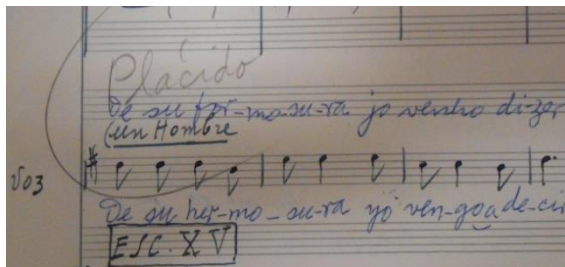 Plácido
De su for-mo-su-ra jo venho di-zer
(un Hombre
Voz
De su her-mo-su-ra yó ven-go a de-cir
ESC. XV